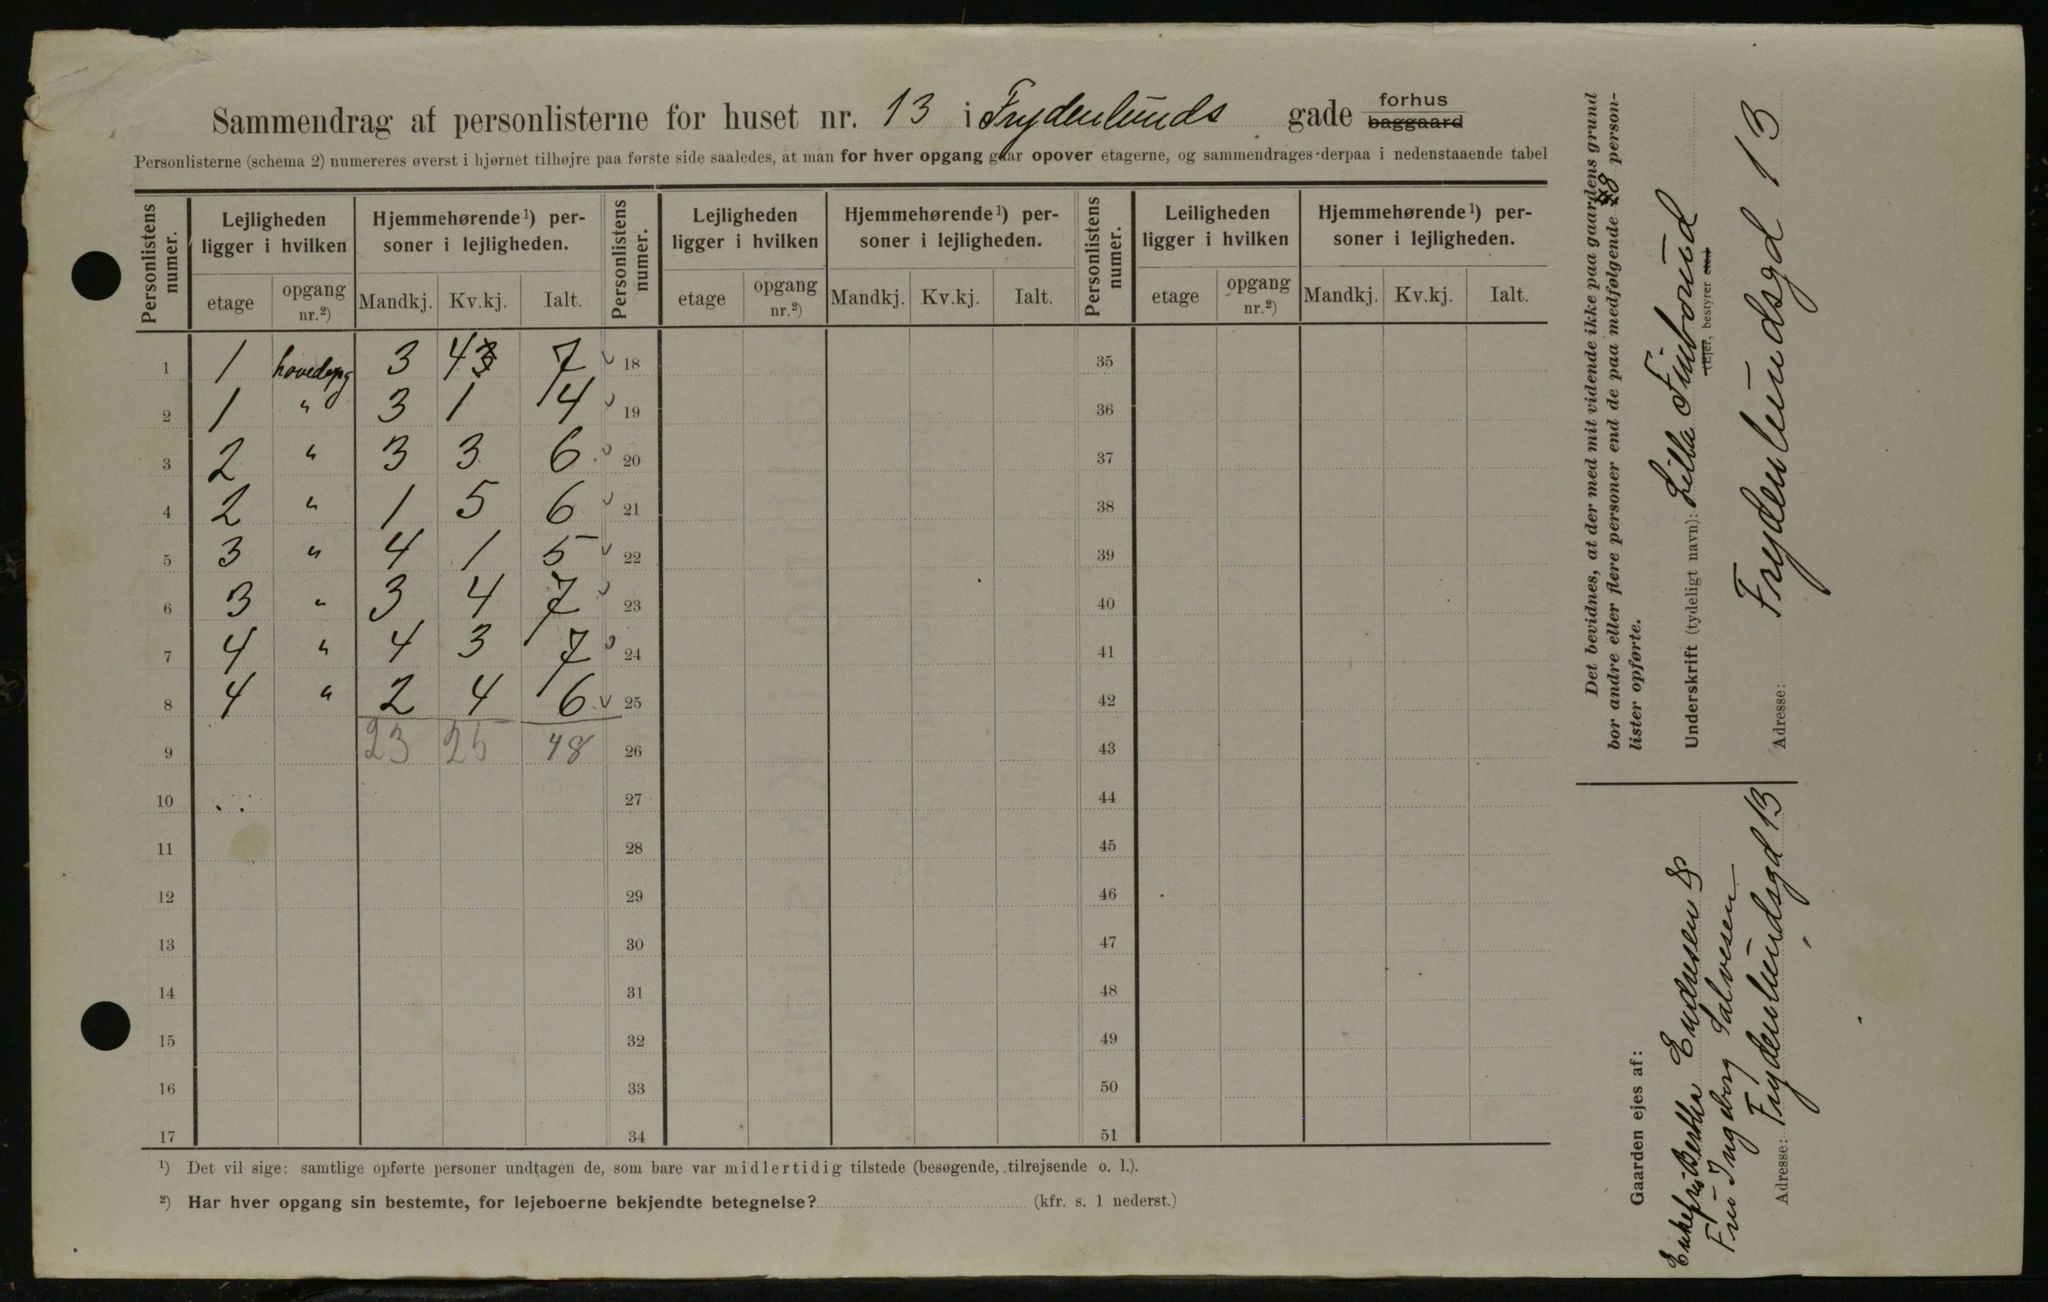 Sammendrag af personlisterne for huset nr. 13 i Frydenlunds gade forhus baggaard
Personlisterne (schema 2) numereres øverst i hjørnet tilhøjre paa første side saaledes, at man for hver opgang gaar opover etagerne, og sammendrages derpaa i nedenstaaende tabel
Personlistens numer. Lejligheden ligger i hvilken Hjemmehørende¹) personer i lejligheden. Personlistens numer. Lejligheden ligger i hvilken Hjemmehørende¹) personer i lejligheden. Personlistens numer. Leiligheden ligger i hvilken Hjemmehørende¹) personer i lejligheden.
etage opgang nr.²) Mandkj. Kv.kj. Ialt. etage opgang nr.²) Mandkj. Kv.kj. Ialt. etage opgang nr.²) Mandkj. Kv.kj. Ialt.
1 1 hovedopg 3 4 3 7 18 35
2 1 " 3 1 4 19 36
3 2 " 3 3 6 20 37
4 2 " 1 5 6 21 38
5 3 " 4 1 5 22 39
6 3 " 3 4 7 23 40
7 4 " 4 3 7 24 41
8 4 " 2 4 6 25 42
9 23 25 48 26 43
10 27 44
11 28 45
12 29 46
13 30 47
14 31 48
15 32 49
16 33 50
17 34 51
¹) Det vil sige: samtlige opførte personer undtagen de, som bare var midlertidig tilstede (besøgende, tilrejsende o. l.).
²) Har hver opgang sin bestemte, for lejeboerne bekjendte betegnelse? (kfr. s. 1 nederst.)
Det bevidnes, at der med mit vidende ikke paa gaardens grund
bor andre eller flere personer end de paa medfølgende 8 person-
lister opførte.
Underskrift (tydeligt navn):
(Ejer, bestyrer etc.)
Adresse: Frydenlundsgd 13
Gaarden ejes af:
Enkefru Bertha Endresen &
Fru Ingeborg Salvesen
Adresse: Frydenlundsgd 13